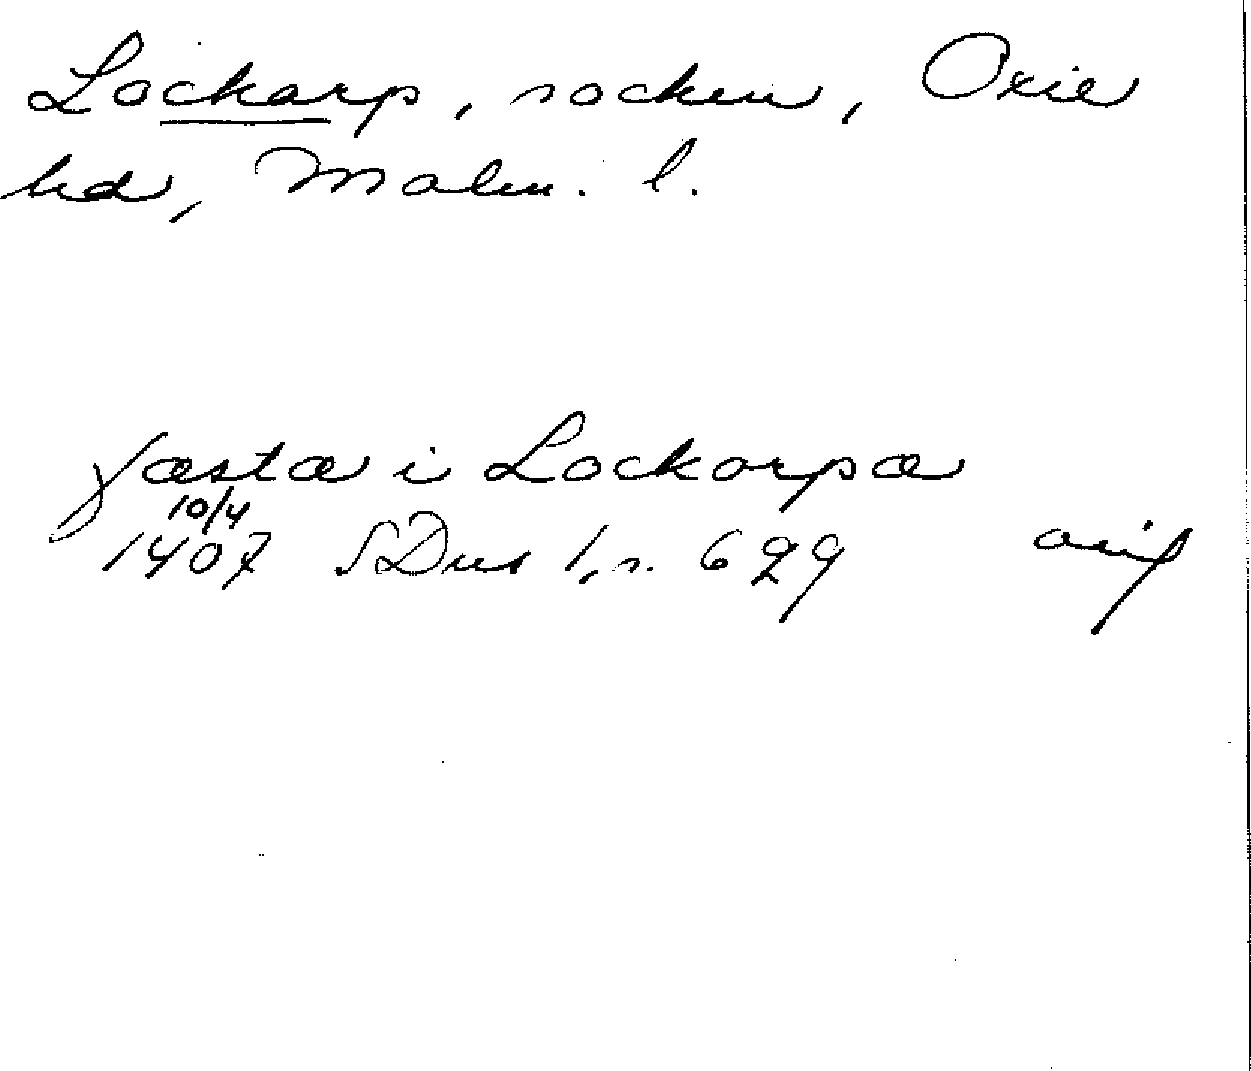 Lockarp, socken, Oxie
hd, Malm. l.
jæstæ i Lockorpæ
10/4
1407 SDns 1, s. 629 avskr